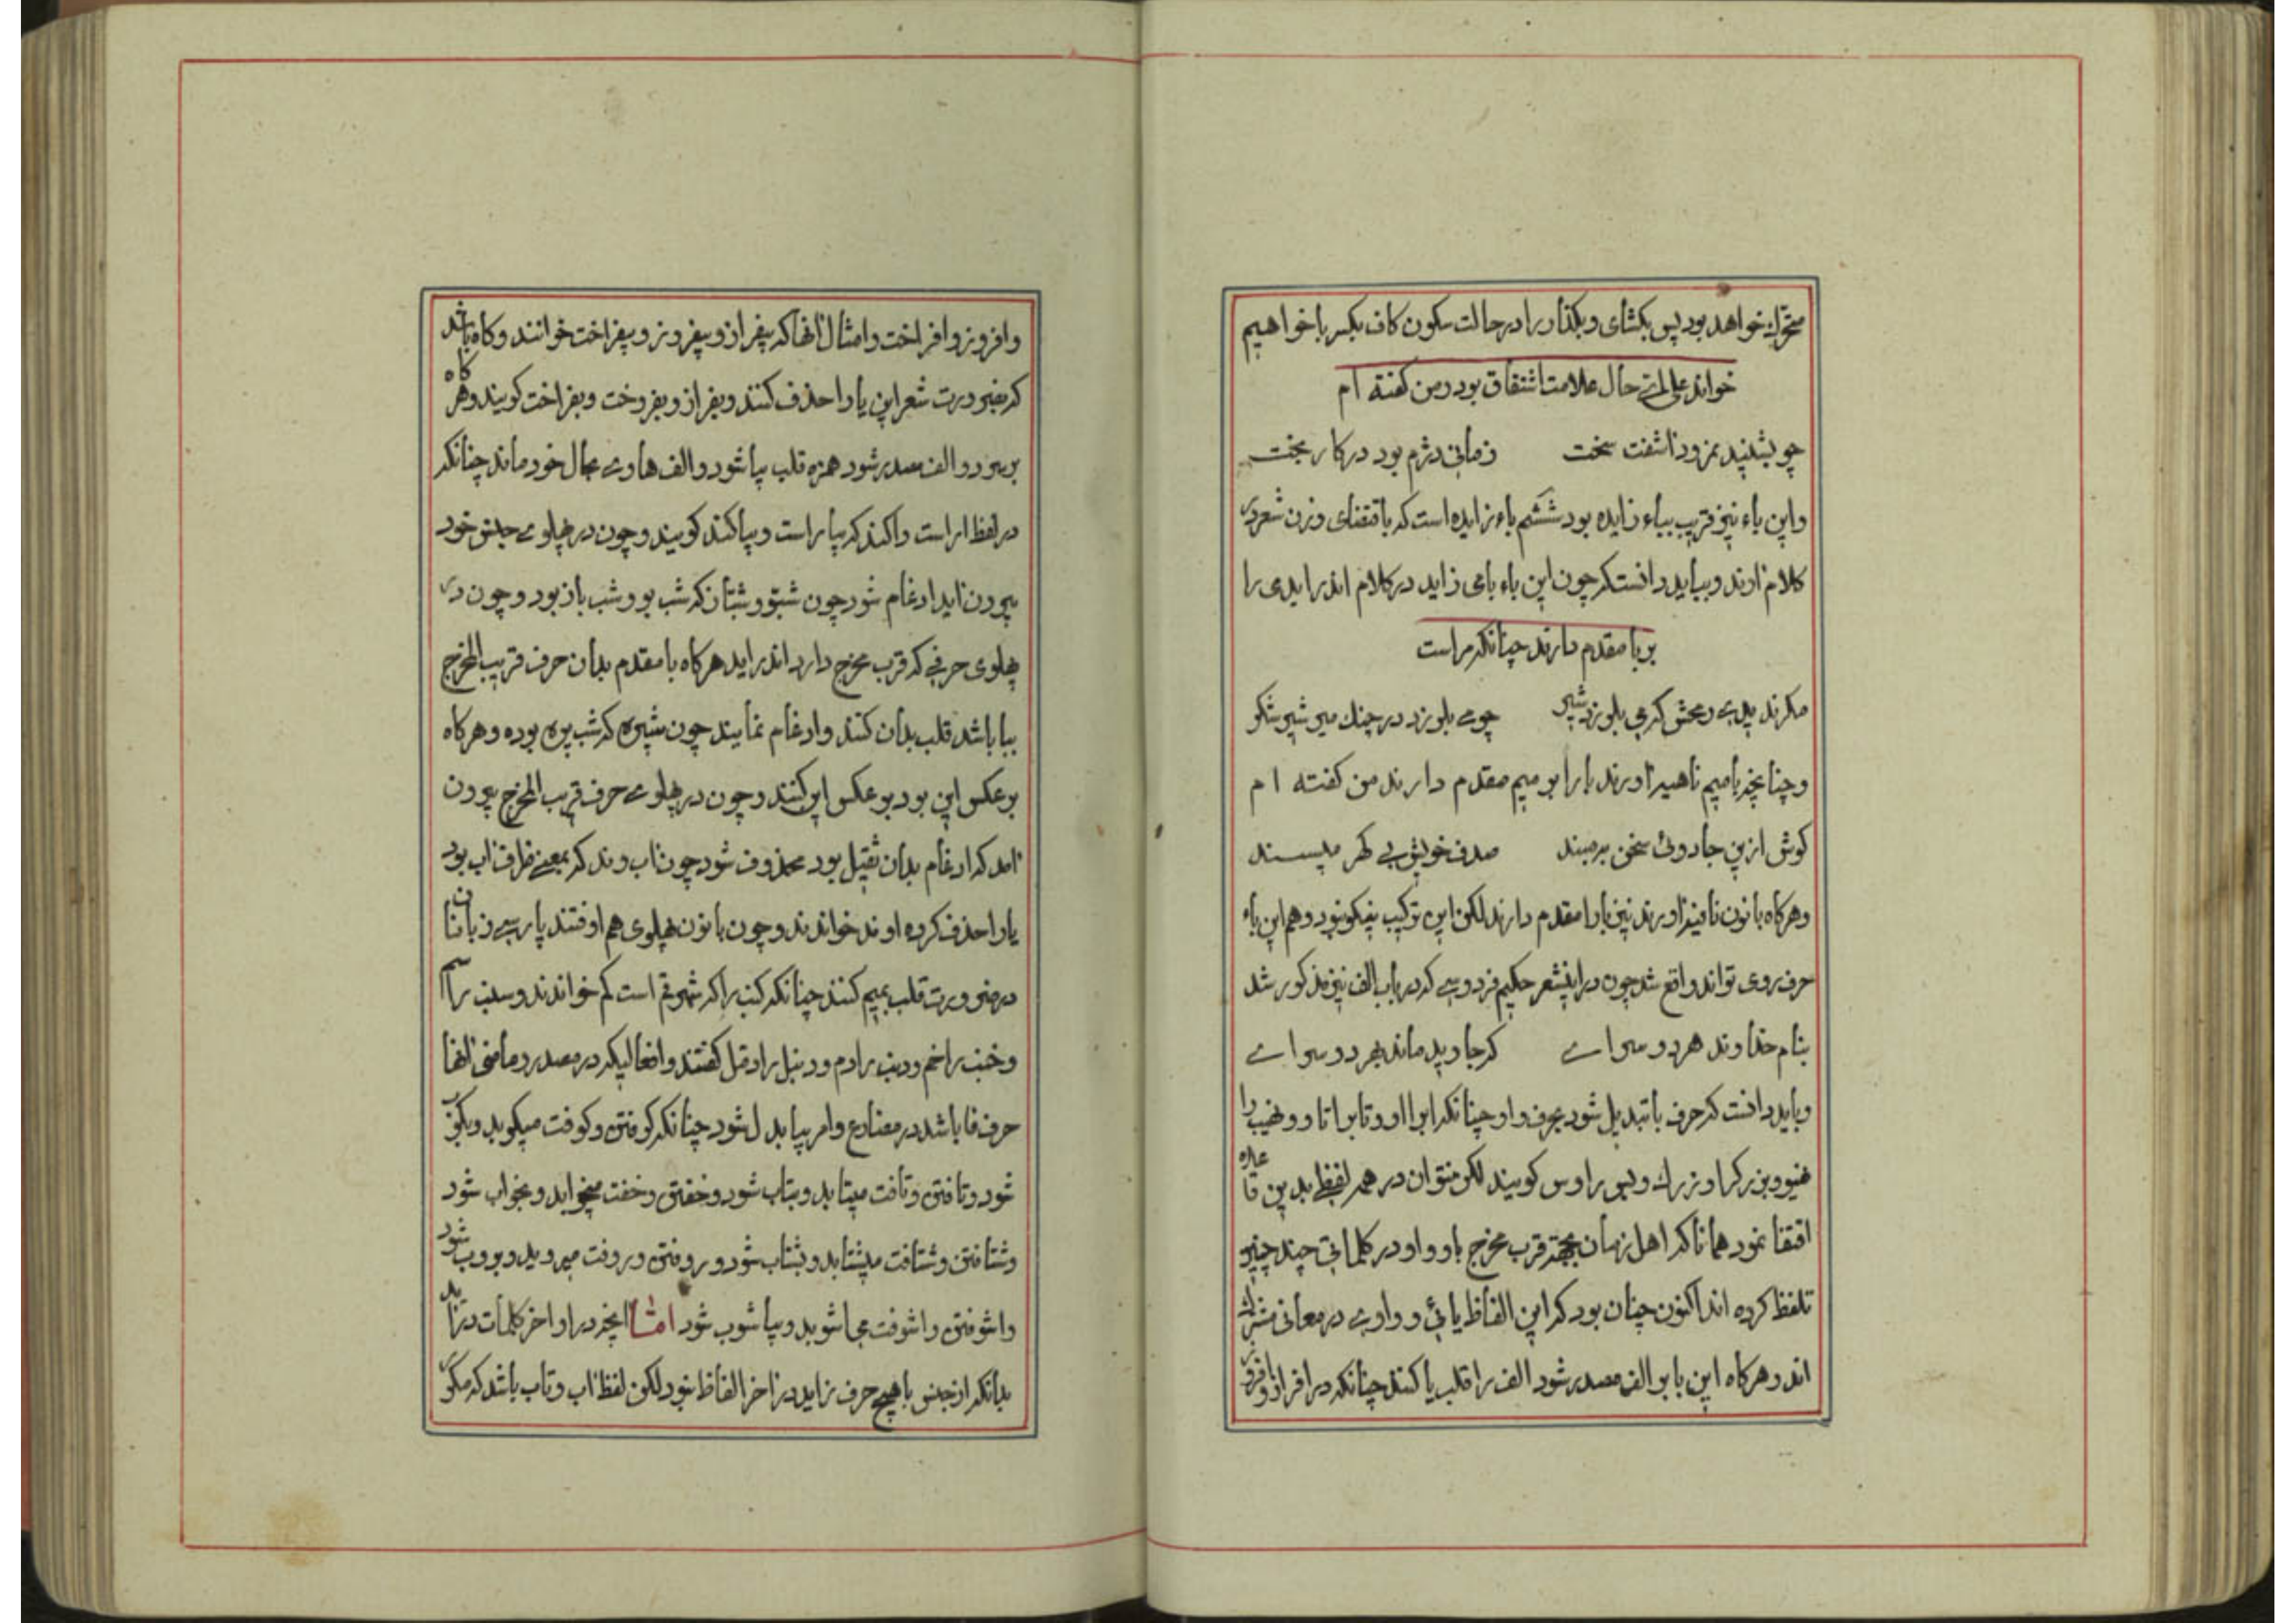 متحرک خواهد بود پس بکشای و بکذار را در حالت سکون کاف بکسر با خواهیم
خواند علی حال علامت اشتقاق بود و من کفته ام
چو بشنید نمرود اشفت سخت زمانی دژم بود در کار بخت
و این باء نیز قریب بباء زایده بود ششم باء زایده است که باقتضای وزن شعر در
کلام اوند و بباید دانست که چون این باء بامی زاید در کلام اندر ایدی را
بر با مقدم دارند چنانکه مراست
چو می بلرزد در چنک میر شیر شکر
و چنانچه بامیم ناهیه اورند با را بر میم مقدم دارند من کفته ام
کوش ازین جادوئ سخن بر مبند صدف خویش بی کهر مپسند
و هرکاه با نون نافیه اورند نیز با را مقدم دارند لکن این ترکیب نیکو نبود و هم این باء
حرف روی تواند واقع شد چون در این شعر حکیم فردوسی که در باب الف نیز مذکور شد
بنام خداوند هر دو سرای که جاوید ماند بهر دو سرای
و باید دانست که حرف با تبدیل شود بحرف واو چنانکه ابر ااور و تابر اتاو و نهیب را
نهیو و بزرک را وزرک و بس را وس کویند لکن نتوان در همه لفظی بدین قاعده
اقتفا نمود همانا که اهل زبان بجهة قرب مخرج با و واو در کلماتی چند چنین
تلفظ کرده اند اکنون چنان بود که این الفاظ یائئ و واوی در معانی مشترک
اند و هرکاه این با بر الف مصدر شود الف را قلب یا کنند چنانکه در افراز و افروز
وافروز و افراخت و امثال انها که بیفراز و بیفروز و بیفراخت خوانند و کاه باشد
که بضرورت شعر این یا را حذف کنند و بفراز و بفروخت و بفراخت کویند و هرکاه
بر سر دو الف مصدر شود همزه قلب بیا شود و الف هاوی بحال خود ماند چنانکه
در لفظ اراست و اکند که بیاراست و بیاکند کویند و چون در پهلوی جنس خود
بیرون اید ادغام شود چون شبو و شباز که شب بو و شب باز بود و چون در
پهلوی حرفی که قرب مخرج دارد اندر اید هرکاه با مقدم بدان حرف قریب المخرج
ببا باشد قلب بدان کنند و ادغام نمایند چون شپره که شب پره بوده و هرکاه
بر عکس این بود بر عکس این کنند و چون در پهلوی حرف قریب المخرج بیرون
امد که ادغام بدان ثقیل بود محذوف شود چون اب وند که بمعنی ظرف اب بود
با را حذف کرده اوند خواندند و چون با نون پهلوی هم اوفتند پارسی زبانان
در ضرورت قلب بمیم کنند چنانکه کنب را که شهر قم است کم خواندند و سنب را سم
و خنب را خم و دنب را دم و دنبل را دمل کفتند و افعالیکه در مصدر و ماضی انها
حرف فا باشد در مضارع و امر ببا بدل شود چنانکه کوفتن و کوفت میکوبد و بکوب
شود و تافتن و تافت میتابد و بتاب شود و خفتن و خفت میخوابد و بخواب شود
و شتافتن و شتافت میشتابد و بشتاب شود و روفتن و روفت میروبد و بروب شود
و اشوفتن و اشوفت می اشوبد و بیاشوب شود اما انچه در اواخر کلمات در اید
بدانکه از جنس با هیچ حرف زاید در اخر الفاظ نبود لکن لفظ اب و تاب باشد که مکرر